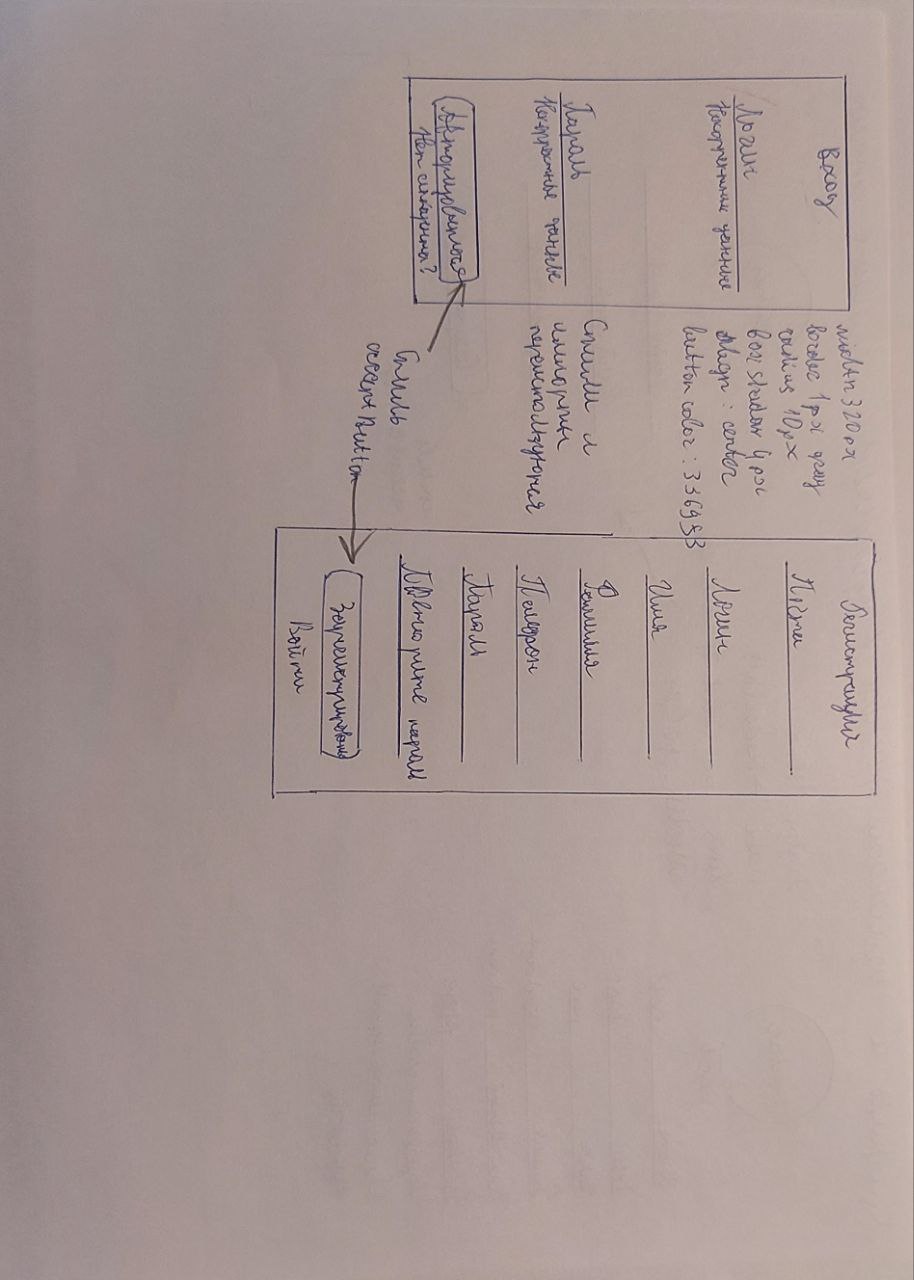 Вход
Логин
Некорректные данные
Пароль
Некорректные данные
Авторизоваться
Нет аккаунта?
width 320px
border 1px gray
radius 10px
box shadow 4px
align : center
button color : 3369
Стили и
импорты
переиспользуются
Стиль
accept Button
Регистрация
Почта
Логин
Имя
Фамилия
Телефон
Пароль
Повторите пароль
Зарегистрироваться
Войти